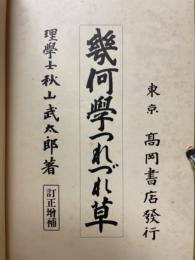 東京 高岡書店發行
幾何學つれづれ草
理學士 秋山武太郎著
訂正增補